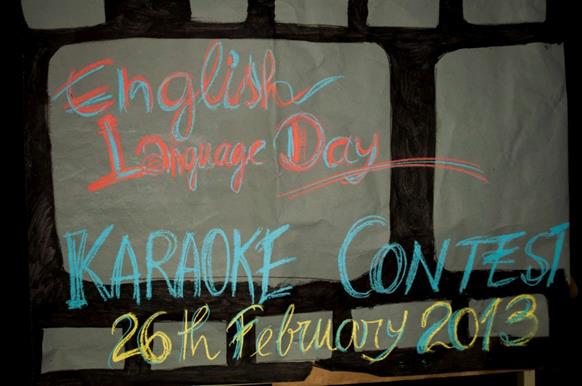 English
Language Day
KARAOKE CONTEST
26th February 2013